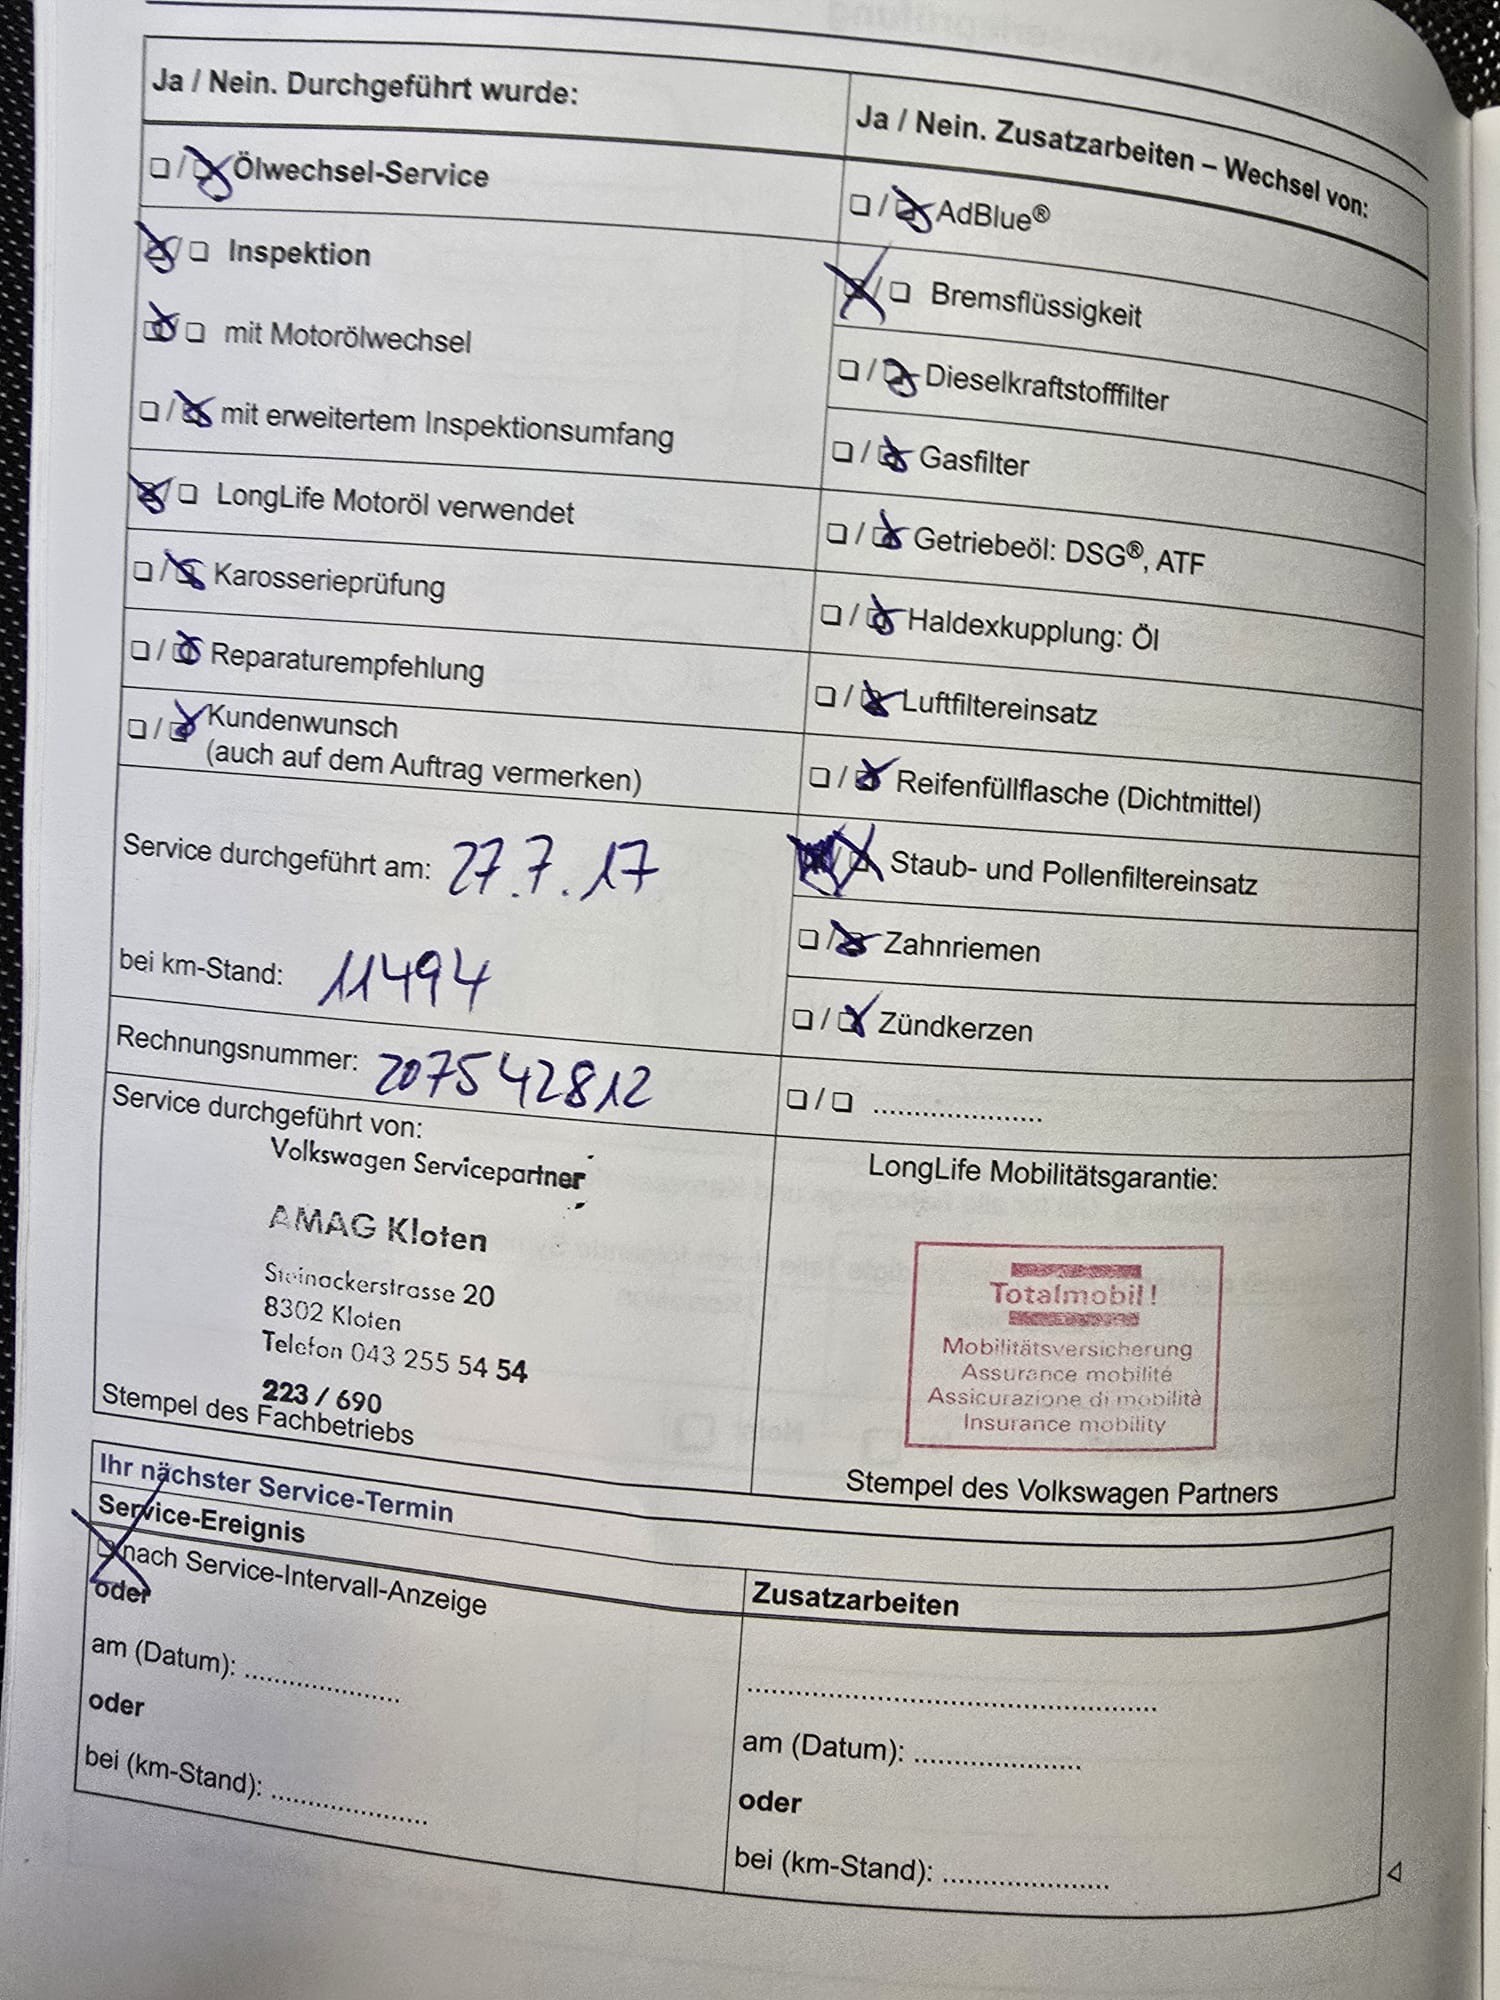 Ja / Nein. Durchgeführt wurde:
☐ / ☒ Ölwechsel-Service
☒ / ☐ Inspektion
☒ / ☐ mit Motorölwechsel
☐ / ☒ mit erweitertem Inspektionsumfang
☒ / ☐ LongLife Motoröl verwendet
☐ / ☒ Karosserieprüfung
☐ / ☒ Reparaturempfehlung
☐ / ☒ Kundenwunsch
(auch auf dem Auftrag vermerken)
Service durchgeführt am: 27.7.17
bei km-Stand: 11494
Rechnungsnummer: 207542812
Service durchgeführt von:
Volkswagen Servicepartner
AMAG Kloten
Steinackerstrasse 20
8302 Kloten
Telefon 043 255 54 54
223 / 690
Stempel des Fachbetriebs
Ja / Nein. Zusatzarbeiten – Wechsel von:
☐ / ☒ AdBlue®
☒ / ☐ Bremsflüssigkeit
☐ / ☒ Dieselkraftstofffilter
☐ / ☒ Gasfilter
☐ / ☒ Getriebeöl: DSG®, ATF
☐ / ☒ Haldexkupplung: Öl
☐ / ☒ Luftfiltereinsatz
☐ / ☒ Reifenfüllflasche (Dichtmittel)
☒ / ☒ Staub- und Pollenfiltereinsatz
☐ / ☒ Zahnriemen
☐ / ☒ Zündkerzen
☐ / ☐ .....................
LongLife Mobilitätsgarantie:
Totalmobil!
Mobilitätsversicherung
Assurance mobilité
Assicurazione di mobilità
Insurance mobility
Stempel des Volkswagen Partners
Ihr nächster Service-Termin
Service-Ereignis
☒ nach Service-Intervall-Anzeige
oder
am (Datum): ....................
oder
bei (km-Stand): ....................
Zusatzarbeiten
....................................................
am (Datum): .....................
oder
bei (km-Stand): .....................